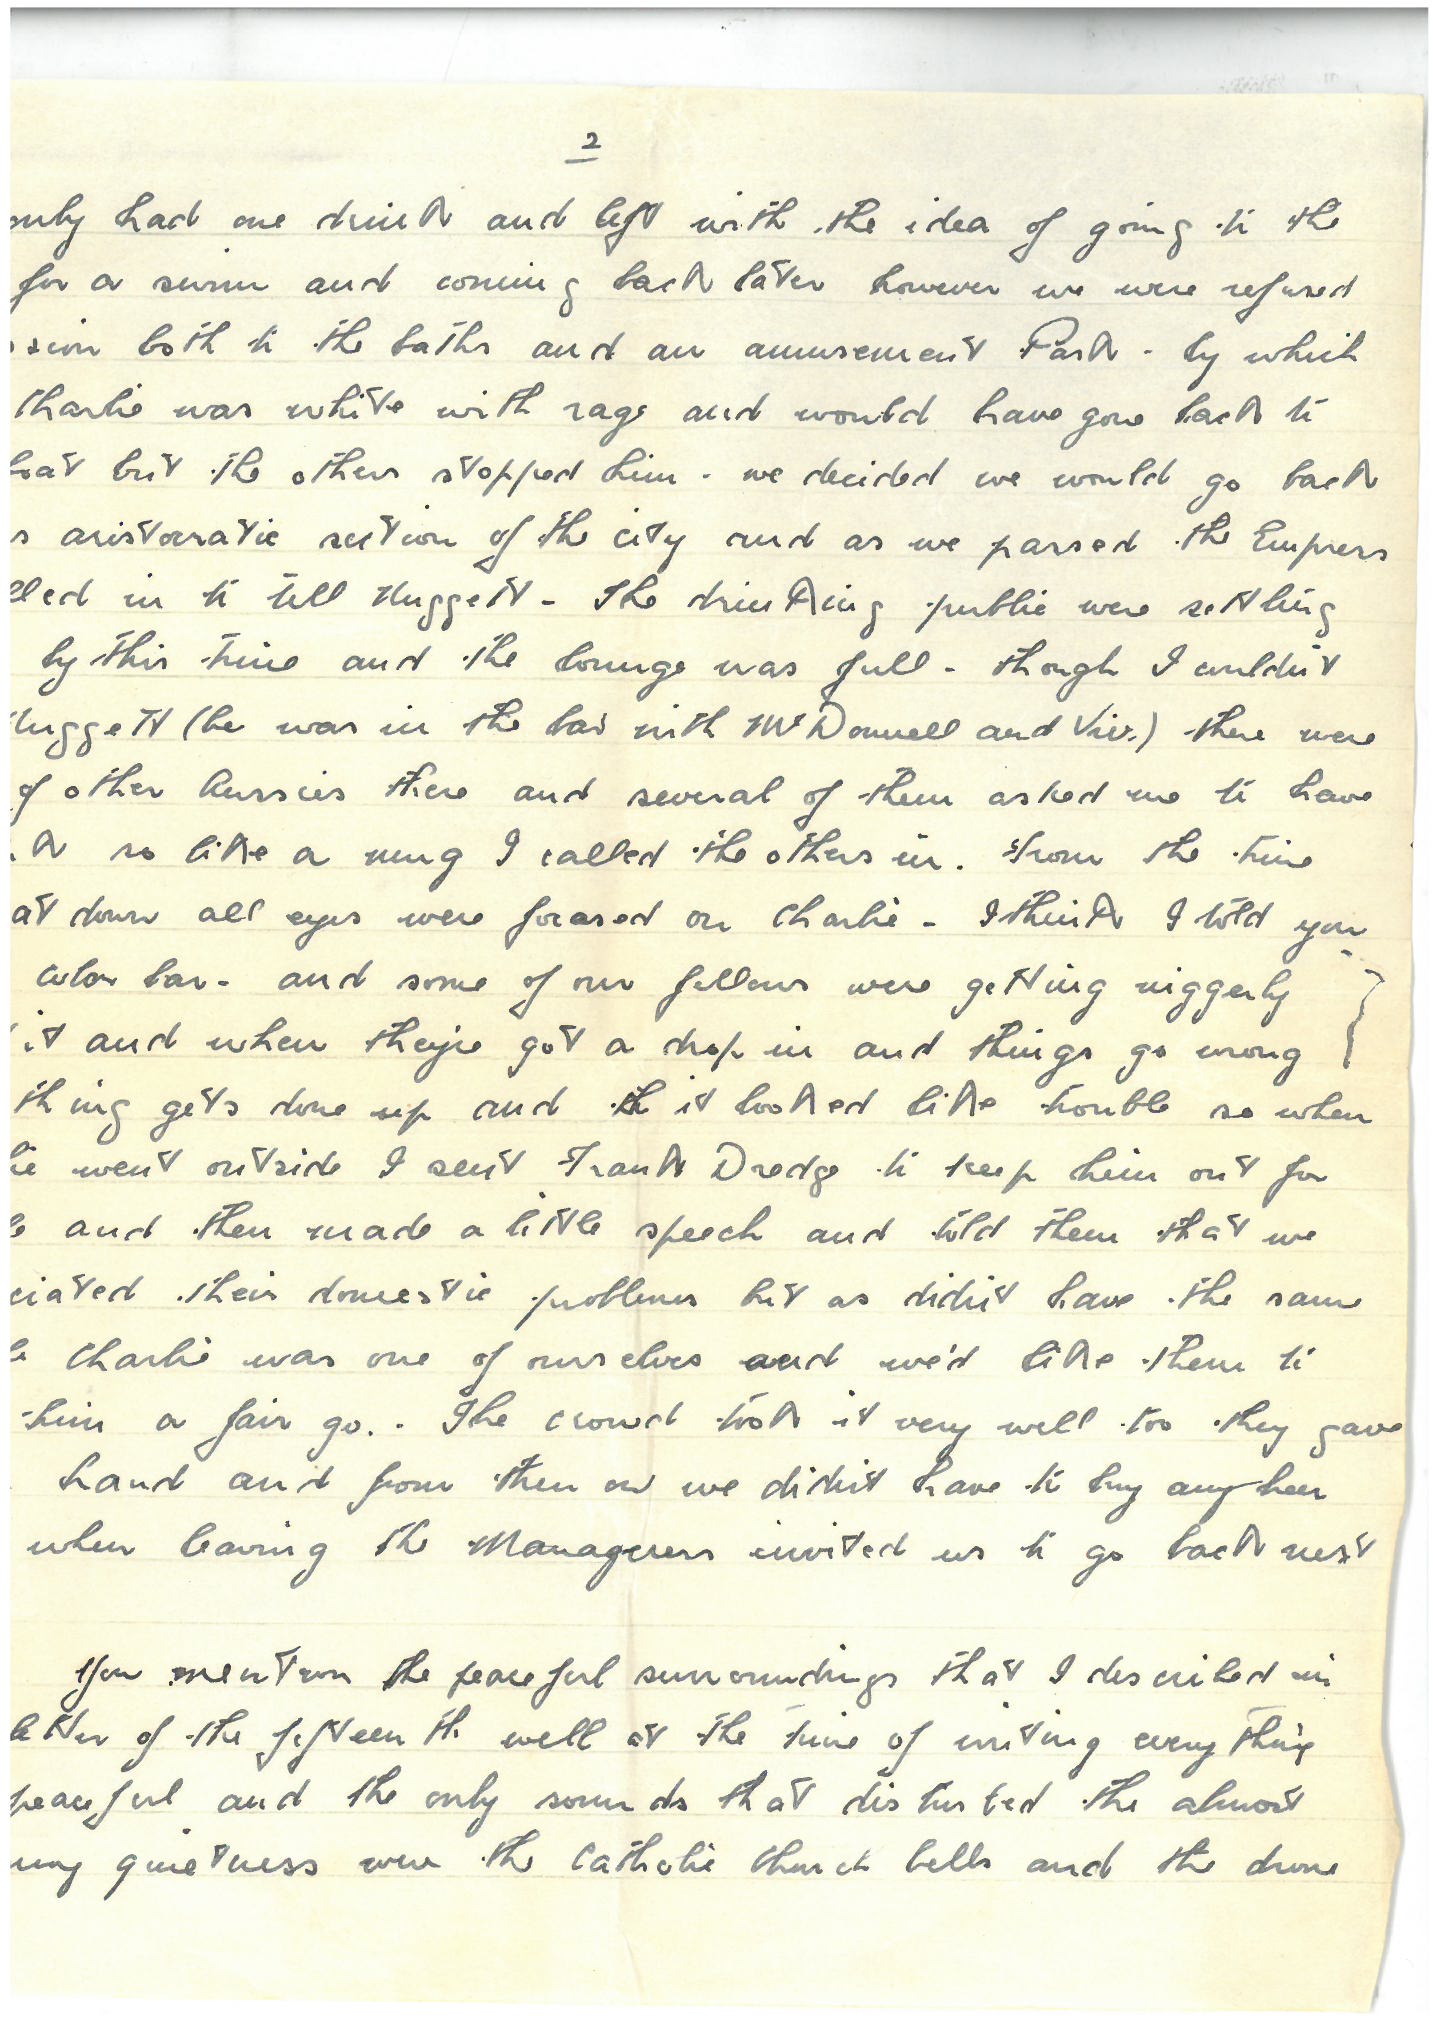 2
only had one drink and left with the idea of going to the
for a swim and coming back later however we were refused
ssion both to the baths and an amusement Park - by which
Charlie was white with rage and would have gone back to
boat but the others stopped him - we decided we would go back
s aristocratic section of the city and as we passed the Empress
lled in to tell Nuggett - The drinking public were settling
by this time and the lounge was full - though I couldn't
Nuggett (he was in the bar with McDonnell and Viv.) there were
of other Aussies there and several of them asked me to have
nk so like a mug I called the others in. From the time
at down all eyes were focased on Charlie - I think I told you
color bar - and some of our fellows were getting niggerly
it and when they're got a drop in and things go wrong
thing gets done up and th it looked like trouble so when
lie went outside I sent Frank Dredge to keep him out for
le and then made a little speech and told them that we
ciated their domestic problems but as didn't have the same
le Charlie was one of ourselves and we'd like them to
him a fair go. - The crowd took it very well too they gave
hand and from then on we didn't have to buy any beer
when leaving the Manageress invited us to go back next
You mention the peaceful surroundings that I described in
letter of the fifteenth well at the time of writing everything
peaceful and the only sounds that disturbed the almost
quietness were the Catholic Church bells and the drone